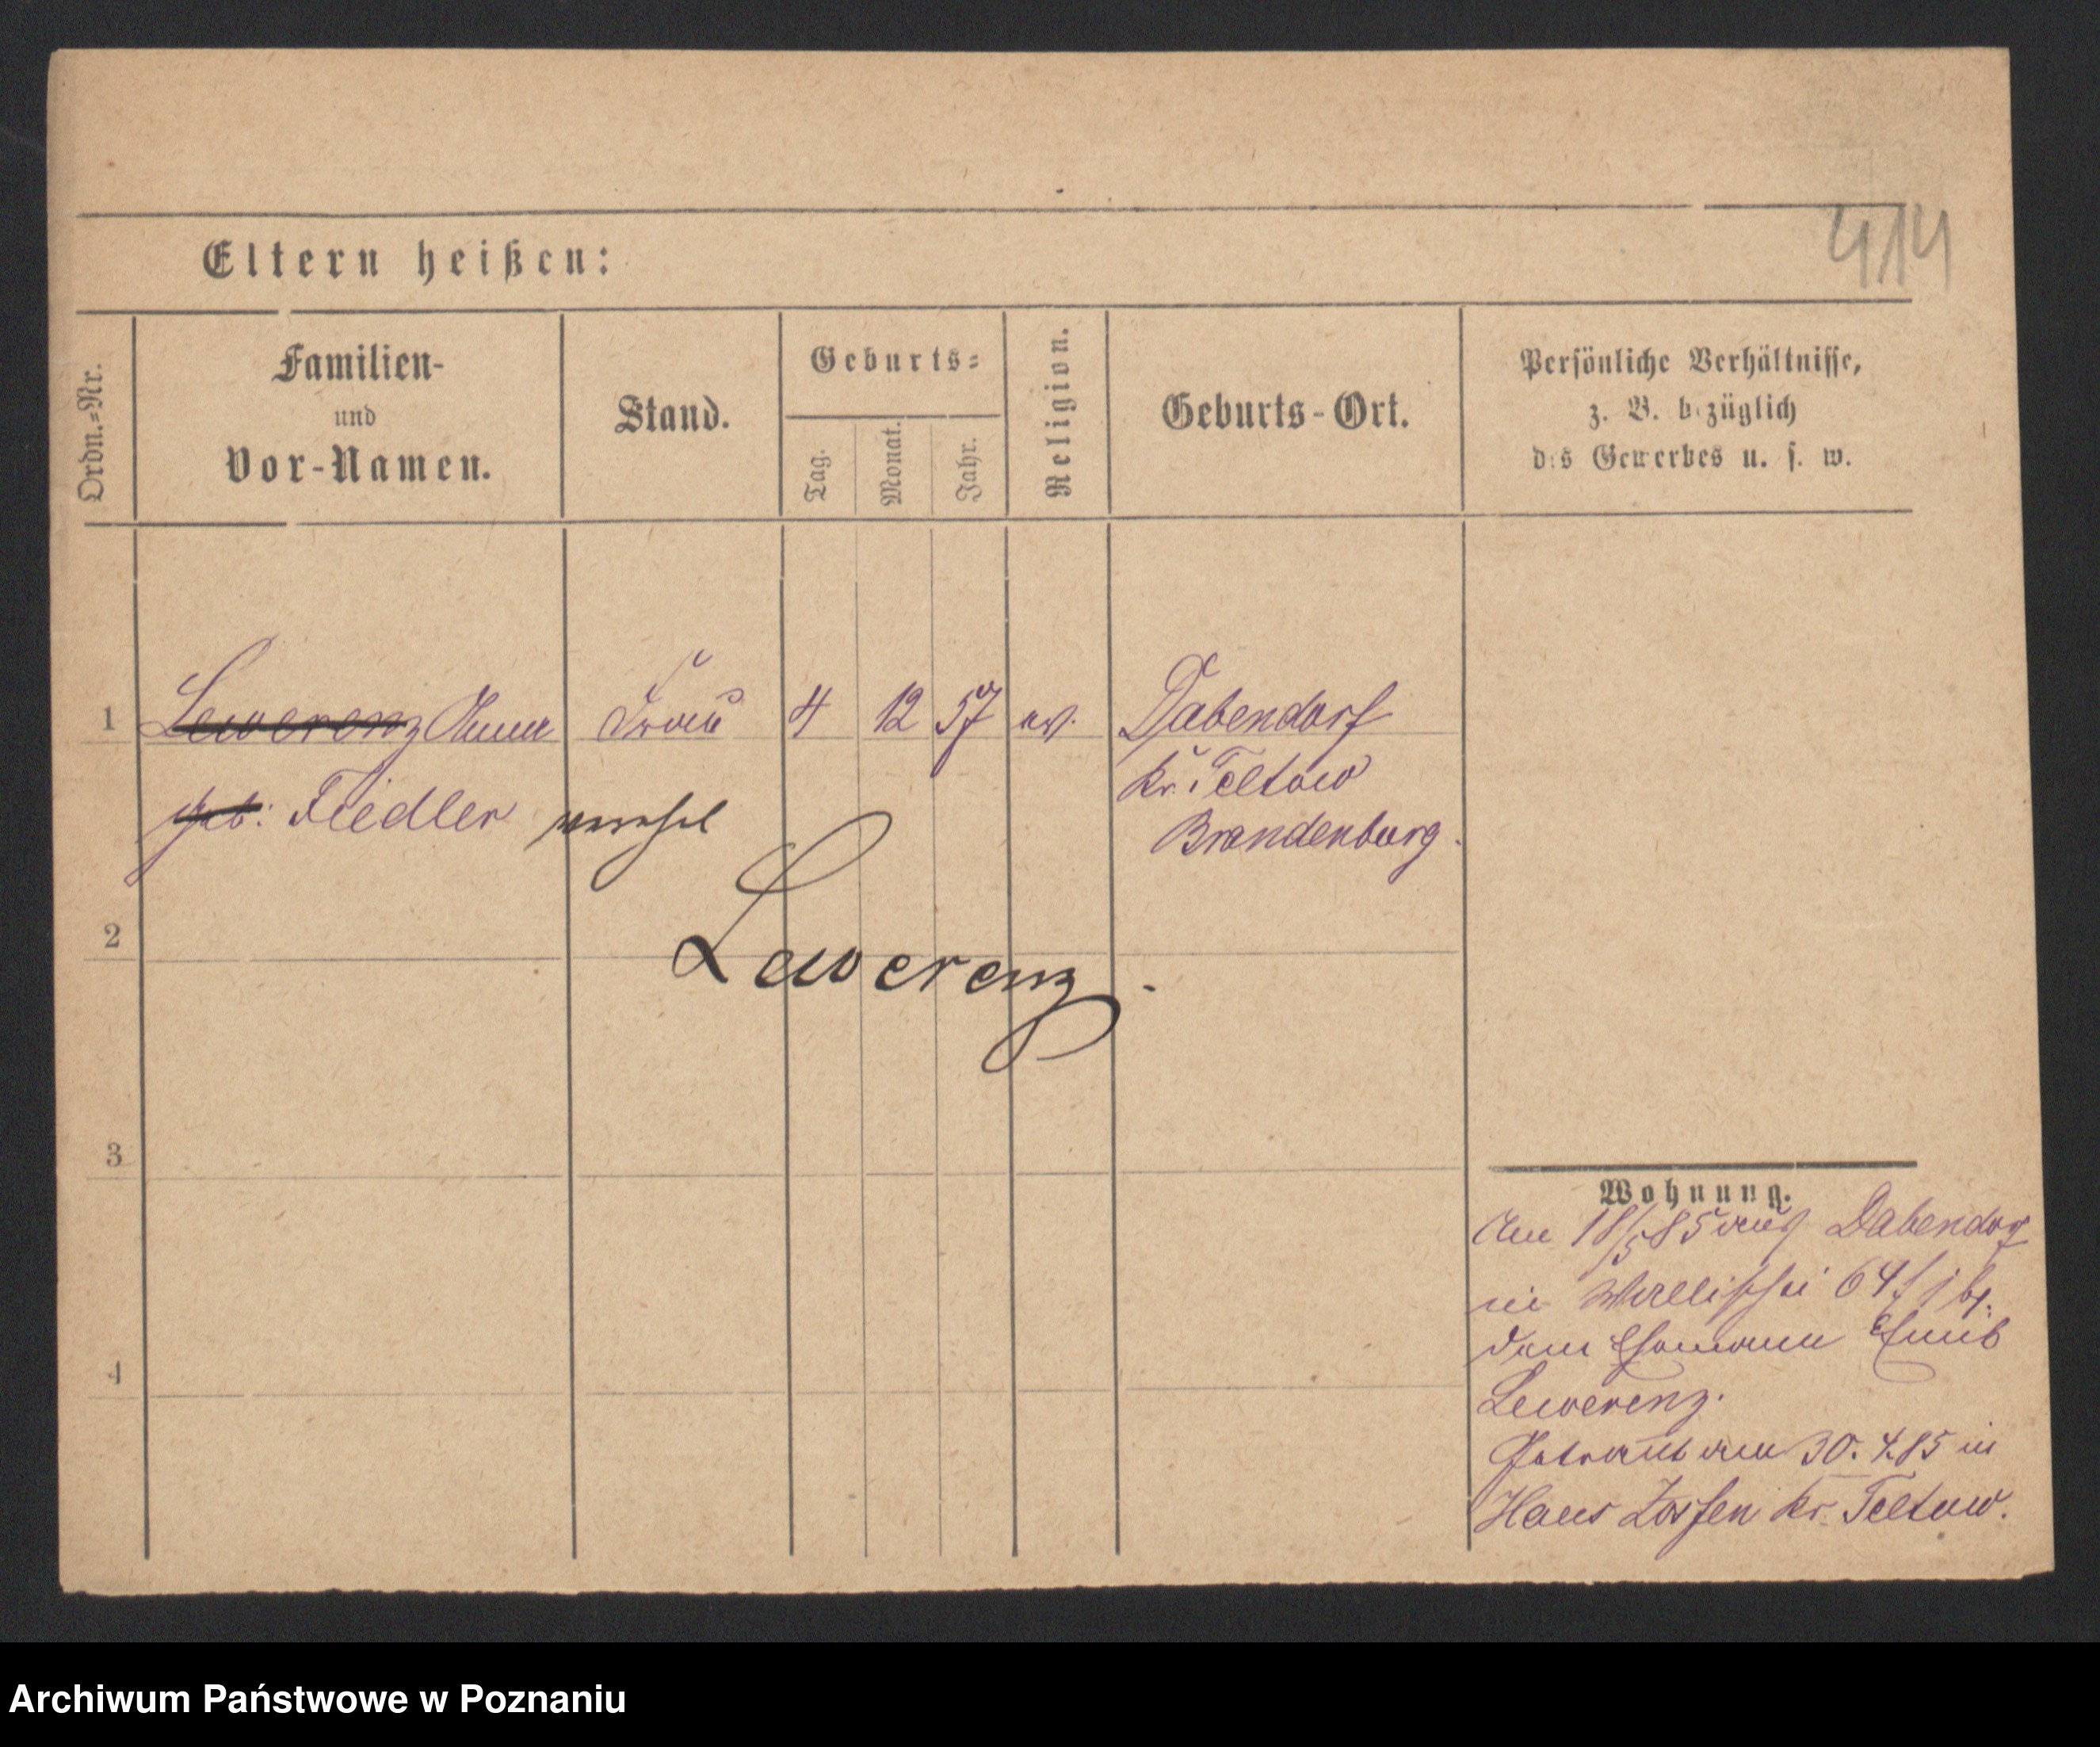 414
Eltern heißen:
Ordn.=Nr.
Familien-
und
Vor-Namen.
Stand.
Geburts=
Tag.
Monat.
Jahr.
Religion.
Geburts-Ort.
Persönliche Verhältnisse,
z. B. bezüglich
des Gewerbes u. s. w.
1 Lewerenz Anna Frau 4 12 57 ev. Dabendorf
Kr. Teltow
geb: Fiedler
Brandenburg.
2
Lewerenz.
3
4
Wohnung.
Am 18/5 85 aus Dabendorf
in Wallischei 64/
dem Ehemann Emil
Lewerenz.
Getraut am 30. 4. 85 in
Haus Zossen Kr. Teltow.
Archiwum Państwowe w Poznaniu